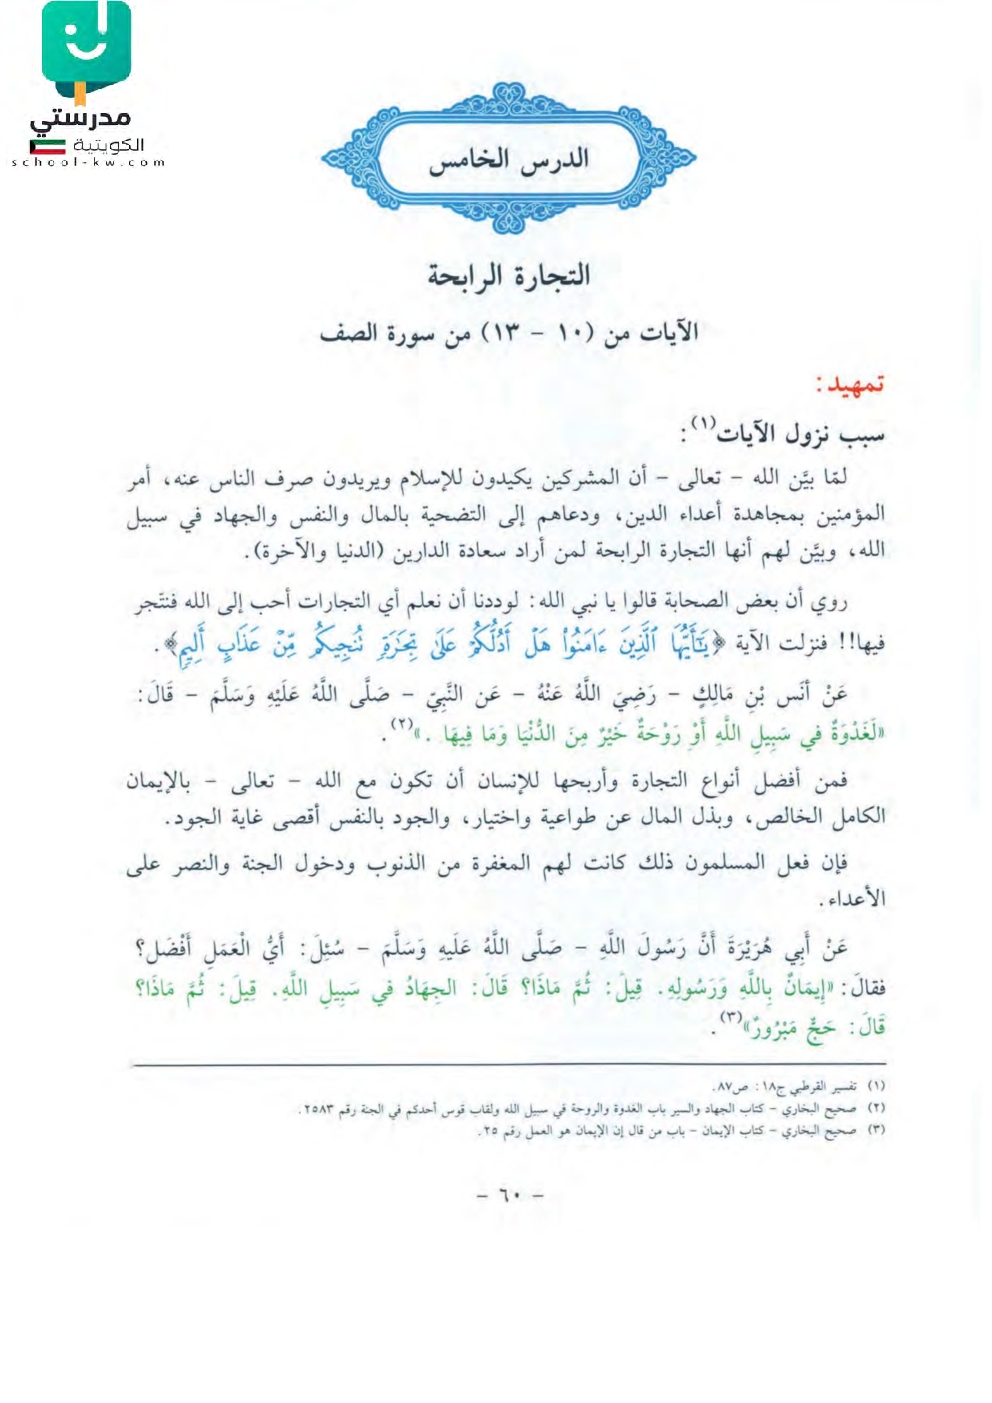 مدرستي
الكويتية
school-kw.com
الدرس الخامس
التجارة الرابحة
الآيات من (١٠ – ١٣) من سورة الصف
تمهيد:
سبب نزول الآيات(١):
لمّا بيَّن الله – تعالى – أن المشركين يكيدون للإسلام ويريدون صرف الناس عنه، أمر
المؤمنين بمجاهدة أعداء الدين، ودعاهم إلى التضحية بالمال والنفس والجهاد في سبيل
الله، وبيَّن لهم أنها التجارة الرابحة لمن أراد سعادة الدارين (الدنيا والآخرة).
روي أن بعض الصحابة قالوا يا نبي الله: لوددنا أن نعلم أي التجارات أحب إلى الله فنتَّجر
فيها!! فنزلت الآية ﴿يَٰٓأَيُّهَا ٱلَّذِينَ ءَامَنُواْ هَلۡ أَدُلُّكُمۡ عَلَىٰ تِجَٰرَةٖ تُنجِيكُم مِّنۡ عَذَابٍ أَلِيمٖ﴾.
عَنْ أنَس بْنِ مَالِكٍ – رَضِيَ اللَّهُ عَنْهُ – عَن النَّبِيّ – صَلَّى اللَّهُ عَلَيْهِ وَسَلَّمَ – قَالَ:
«لَغَدْوَةٌ في سَبِيلِ اللَّهِ أَوْ رَوْحَةٌ خَيْرٌ مِنَ الدُّنْيَا وَمَا فِيهَا .»(٢).
فمن أفضل أنواع التجارة وأربحها للإنسان أن تكون مع الله – تعالى – بالإيمان
الكامل الخالص، وبذل المال عن طواعية واختيار، والجود بالنفس أقصى غاية الجود.
فإن فعل المسلمون ذلك كانت لهم المغفرة من الذنوب ودخول الجنة والنصر على
الأعداء.
عَنْ أَبِي هُرَيْرَةَ أَنَّ رَسُولَ اللَّهِ – صَلَّى اللَّهُ عَلَيهِ وَسَلَّمَ – سُئِلَ: أَيُّ الْعَمَلِ أَفْضَل؟
فقالَ: «إيمَانٌ بِاللَّهِ وَرَسُولِهِ. قِيلَ: ثُمَّ مَاذَا؟ قَالَ: الجِهَادُ في سَبِيلِ اللَّهِ. قِيلَ: ثُمَّ مَاذَا؟
قَالَ: حَجٌّ مَبْرُورٌ»(٣).
(١) تفسير القرطبي ج١٨: ص٨٧.
(٢) صحيح البخاري – كتاب الجهاد والسير باب الغدوة والروحة في سبيل الله ولقاب قوس أحدكم في الجنة رقم ٢٥٨٣.
(٣) صحيح البخاري – كتاب الإيمان – باب من قال إن الإيمان هو العمل رقم ٢٥.
– ٦٠ –